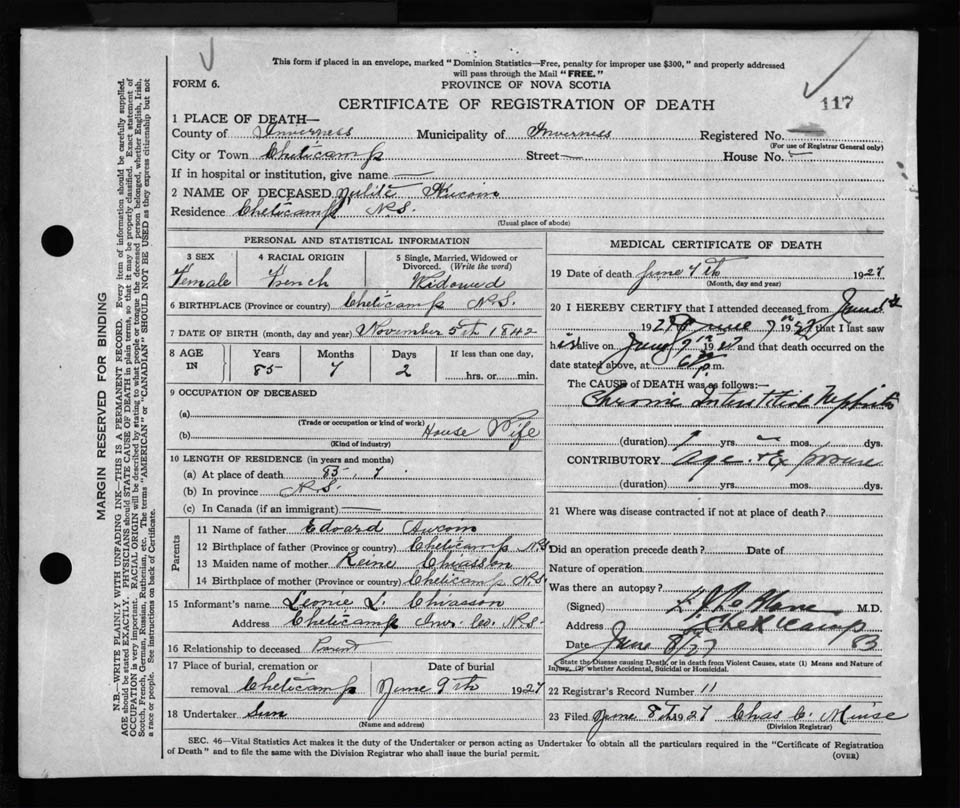 This form if placed in an envelope, marked "Dominion Statistics—Free, penalty for improper use $300," and properly addressed
will pass through the Mail "FREE."
FORM 6.
PROVINCE OF NOVA SCOTIA
CERTIFICATE OF REGISTRATION OF DEATH
117
1 PLACE OF DEATH—
County of Inverness Municipality of Inverness Registered No.
(For use of Registrar General only)
City or Town Cheticamp Street — House No. —
If in hospital or institution, give name —
2 NAME OF DECEASED Aucoin
Residence Cheticamp N.S.
(Usual place of abode)
PERSONAL AND STATISTICAL INFORMATION
3 SEX
Female
4 RACIAL ORIGIN
French
5 Single, Married, Widowed or
Divorced. (Write the word)
Widowed
6 BIRTHPLACE (Province or country) Cheticamp N.S.
7 DATE OF BIRTH (month, day and year) November 5th 1842
8 AGE
IN
Years
85
Months
7
Days
2
If less than one day,
hrs. or min.
9 OCCUPATION OF DECEASED
(a)
(Trade or occupation or kind of work)
(b) House Wife
(Kind of industry)
10 LENGTH OF RESIDENCE (in years and months)
(a) At place of death 85, 7.
(b) In province N.S.
(c) In Canada (if an immigrant) —
Parents
11 Name of father Edoard Aucoin
12 Birthplace of father (Province or country) Cheticamp N.S.
13 Maiden name of mother Reine Chiasson
14 Birthplace of mother (Province or country) Cheticamp N.S.
15 Informant's name Leonie L. Chiasson
Address Cheticamp Inv. Co. N.S.
16 Relationship to deceased Parent
17 Place of burial, cremation or
removal Cheticamp
Date of burial
June 9th 1927
18 Undertaker
(Name and address)
MEDICAL CERTIFICATE OF DEATH
19 Date of death June 7th 1927
(Month, day and year)
20 I HEREBY CERTIFY that I attended deceased from June 1st
1927 June 7th 1927 that I last saw
h alive on June 7th 1927 and that death occurred on the
date stated above, at 6 p.m.
The CAUSE of DEATH was as follows:—
Chronic Interstitial Nephritis
(duration) 1 yrs. mos. dys.
CONTRIBUTORY Age & Exposure
(duration) yrs. mos. dys.
21 Where was disease contracted if not at place of death?
Did an operation precede death? Date of
Nature of operation
Was there an autopsy?
(Signed) M.D.
Address Cheticamp
Date June 8/27
State the Disease causing Death, or in death from Violent Causes, state (1) Means and Nature of
Injury, (2) whether Accidental, Suicidal or Homicidal.
22 Registrar's Record Number 11
23 Filed June 8th 1927 Chas C. Muise
(Division Registrar)
SEC. 46—Vital Statistics Act makes it the duty of the Undertaker or person acting as Undertaker to obtain all the particulars required in the "Certificate of Registration
of Death" and to file the same with the Division Registrar who shall issue the burial permit.
(OVER)
MARGIN RESERVED FOR BINDING
N.B.—WRITE PLAINLY, WITH UNFADING INK—THIS IS A PERMANENT RECORD. Every item of information should be carefully supplied.
AGE should be stated EXACTLY. PHYSICIANS should STATE CAUSE OF DEATH in plain terms, so that it may be properly classified. Exact statement of
OCCUPATION is very important. RACIAL ORIGIN will be described by stating to what people or tongue the deceased person belonged, whether English, Irish,
Scotch, French, German, Russian, Ruthenian, etc. The terms "AMERICAN" or "CANADIAN" SHOULD NOT BE USED as they express citizenship but not
a race or people. See instructions on back of Certificate.